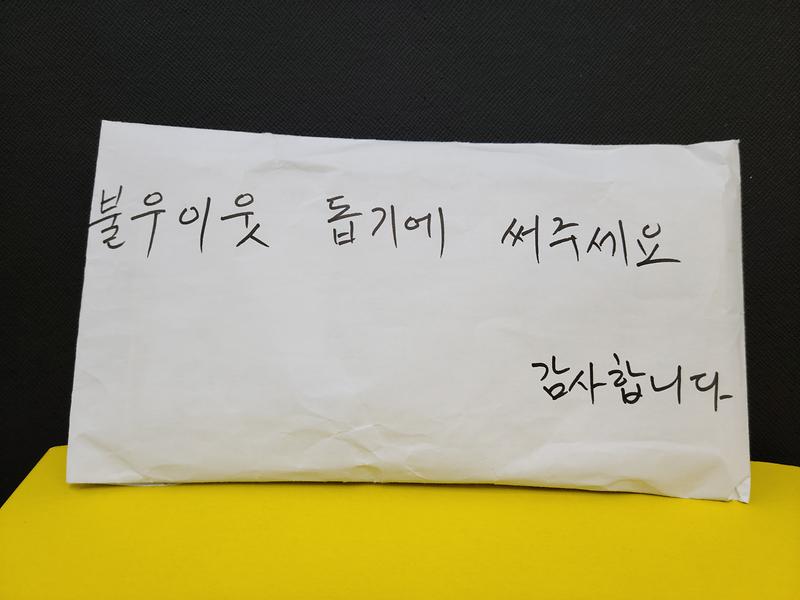 불우이웃 돕기에 써주세요
감사합니다